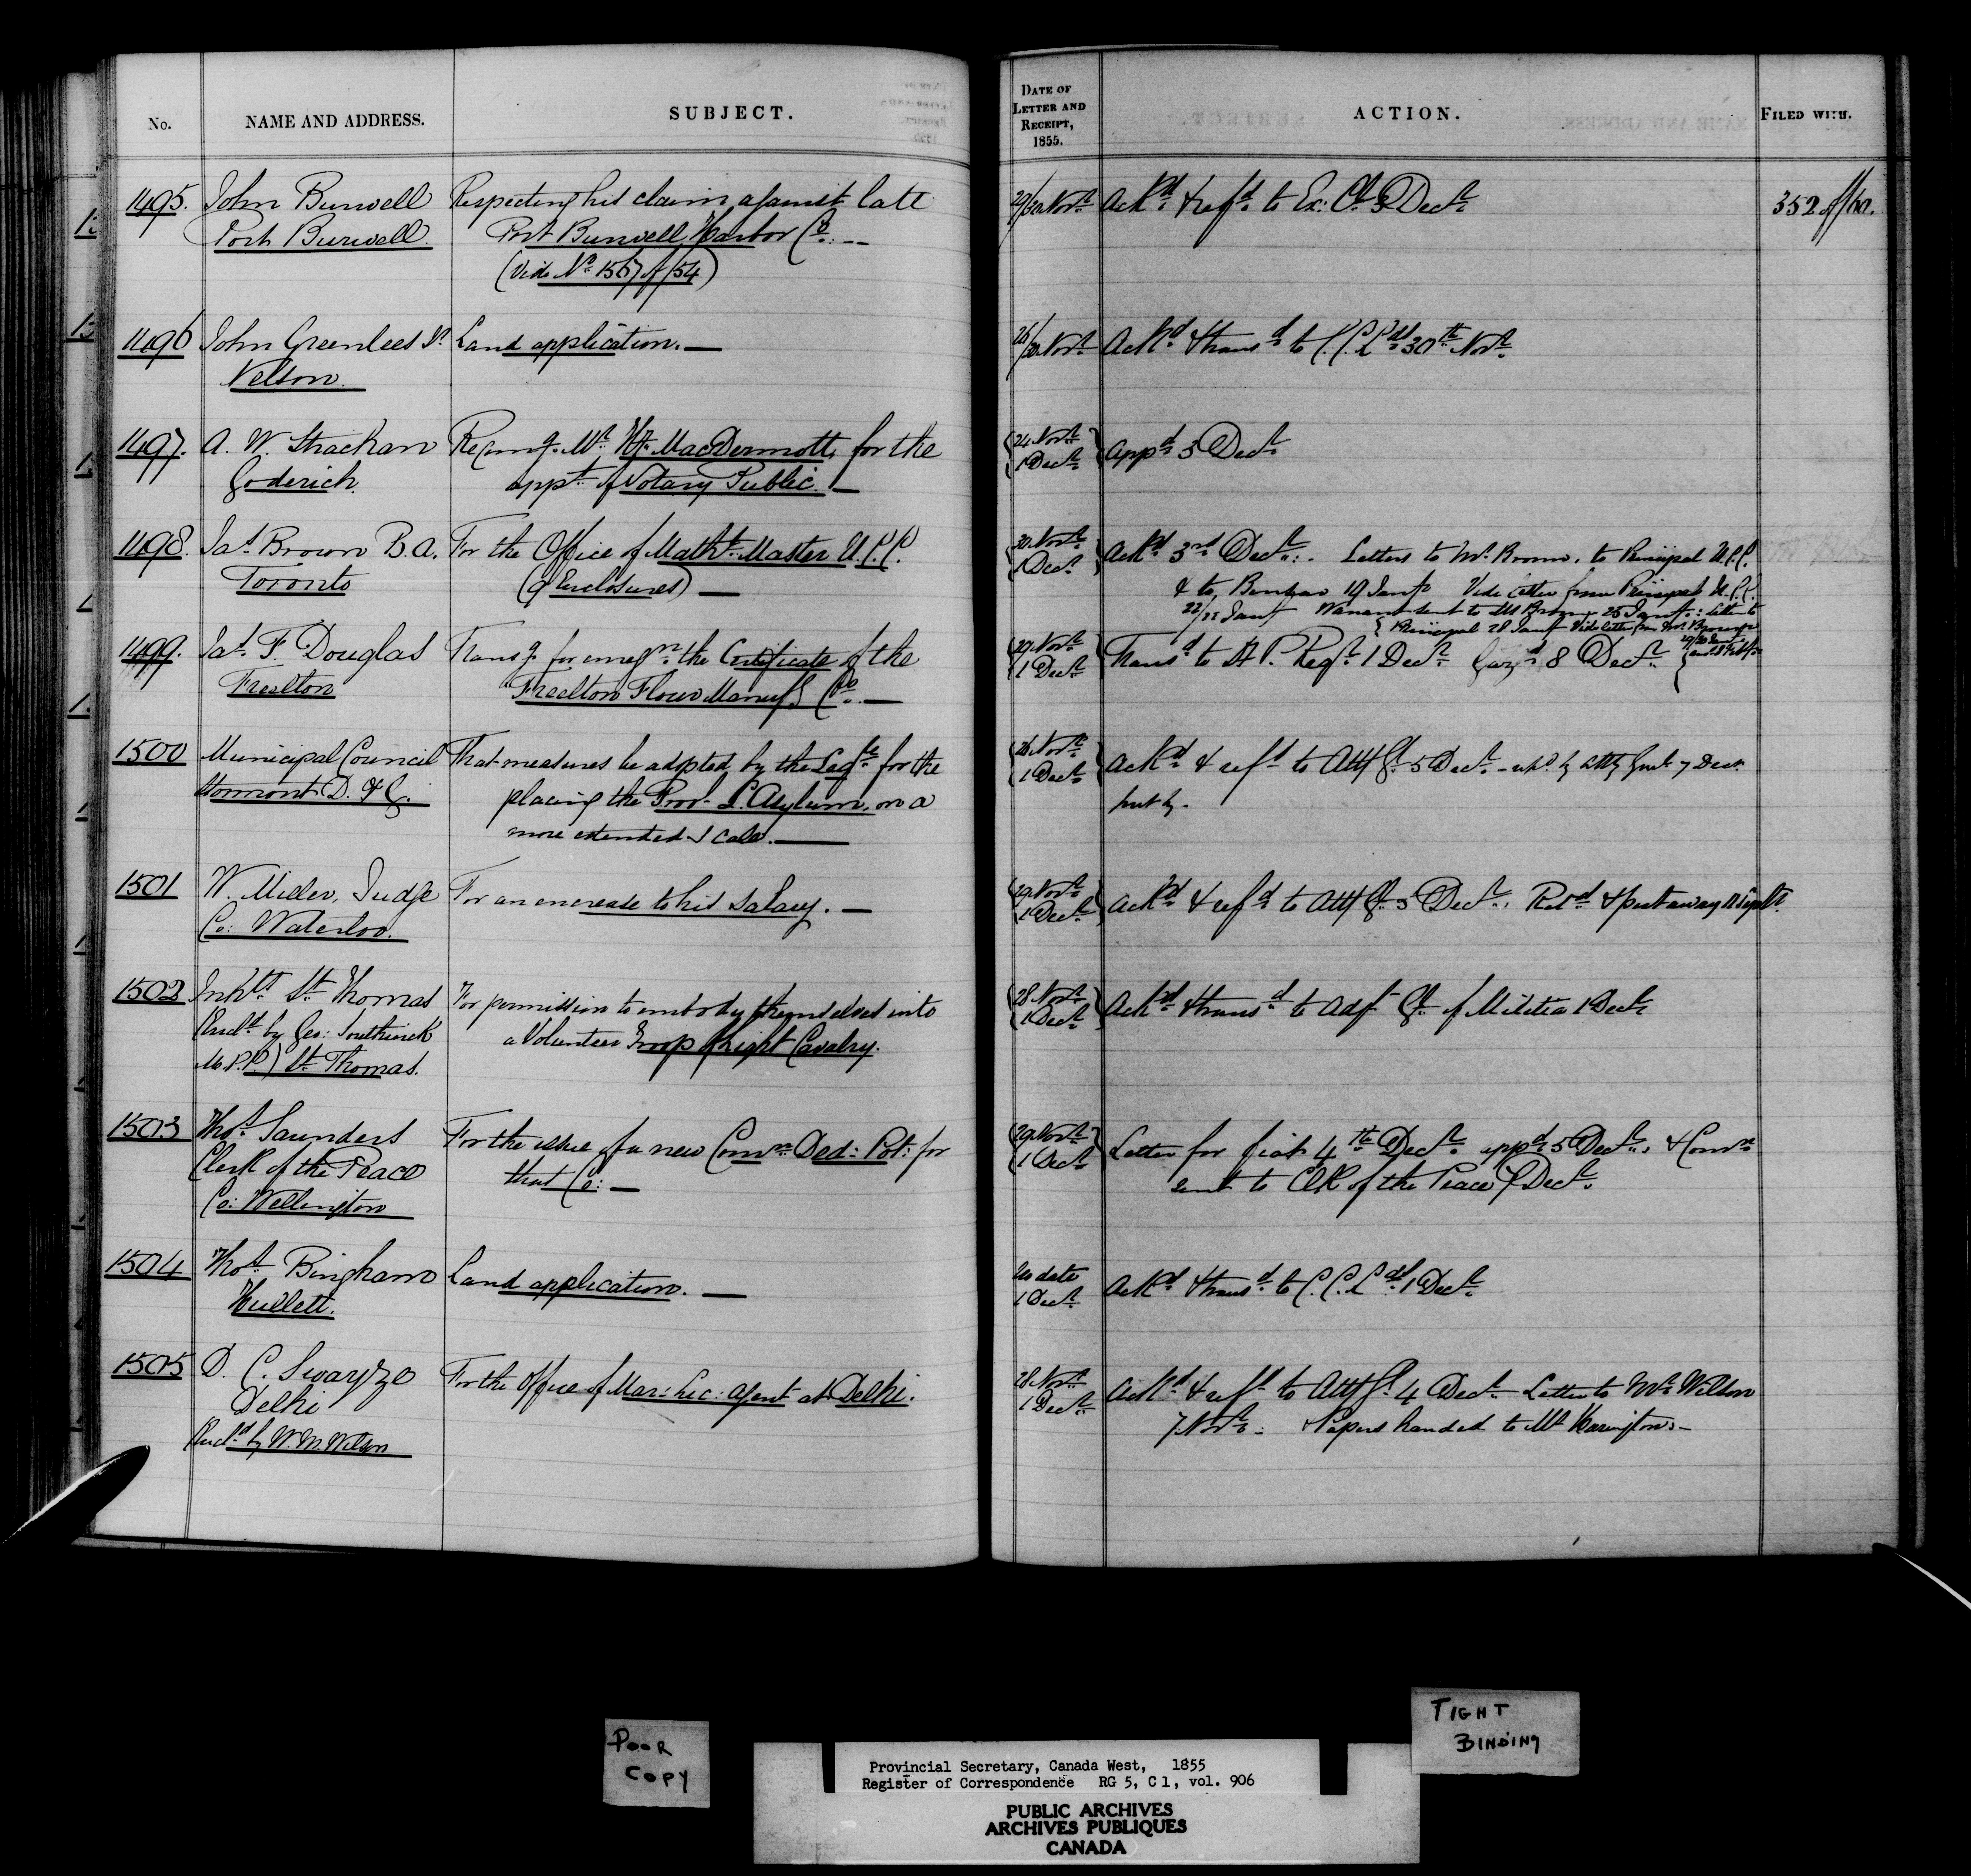 No. NAME AND ADDRESS. SUBJECT. DATE OF LETTER AND RECEIPT, 1855. ACTION. FILED WITH.
1495. John Burwell Respecting his claim against late 29/30 Novr. Ackd. & refd. to Ex: Cl. 3 Decr. 352 of /60.
Port Burwell. Port Burwell Harbor Co. —
(Vide No. 1567 of /54)
1496 John Greenlees Sr. Land application. — 26/30 Novr. Ackd. & transd. to C. C. Lds. 30th Novr.
Nelson.
1497. A. W. Strachan Recomg. Mr. MacDermott, for the 24 Novr. Appd. 3 Decr.
Goderich. appt. of Notary Public. — 1 Decr.
1498. Jas. Brown B.A. For the Office of Matht. Master U.C.C. 30 Novr. Ackd. 3rd Decr. Letters to Mr. Brown, to Principal U.C.C.
Toronto (9 Enclosures) — 1 Decr. & to 19 Jany. Vide letter from Principal U.C.C.
22/23 Jany Warrant sent to Mr Brown 25 Jany: Letter to
Principal 28 Jany Vide letter from Mr. Brown
1499. Jas. F. Douglas Transg. for the Certificate of the 29 Novr. Transd. to P. Regr. 1 Decr. Gazd. 8 Decr. 29/30 Jany
Freelton Freelton Flour Manufg. Co. — 1 Decr.
1500 Municipal Council That measures be adopted by the Legre. for the 26 Novr. Ackd. & refd. to Atty Gl. 5 Decr. - by Atty Genl. 7 Decr.
Stormont D. & G. placing the Prov. L. Asylum, on a 1 Decr. put by.
more extended scale. —
1501 W. Miller, Judge For an encrease to his Salary. — 29 Novr. Ackd. & refd. to Atty Gl. 5 Decr. Retd. & put away 12 Septr.
Co: Waterloo. 1 Decr.
1502 Inhbts. St. Thomas For permission to embody themselves into 28 Novr. Ackd. & transd. to Adjt. Gl. of Militia 1 Decr.
(Encld. by Geo: Southwick a Volunteer Troop of Light Cavalry. 1 Decr.
M.P.P.) St. Thomas.
1503 Thos. Saunders For the issue of a new Comn. Ded: Pot: for 29 Novr. Letter for fiat 4th Decr. appd. 5 Decr. & Comn.
Clerk of the Peace that Co: — 1 Decr. sent to Clk of the Peace Decr.
Co: Wellington
1504 Thos. Bingham Land application. — No date Ackd. & transd. to C. C. Lds. 1 Decr.
Hullett. 1 Decr.
1505 D. C. Swayze For the Office of Mar: Lic: Agent at Delhi. 28 Novr. Ackd. & refd. to Atty Gl. 4 Decr. Letter to Mr. Wilson
Delhi 1 Decr. 7 Novr. & Papers handed to Mr Harington. —
Encld. by W. M. Wilson
POOR
COPY
TIGHT
BINDING
Provincial Secretary, Canada West, 1855
Register of Correspondence RG 5, C 1, vol. 906
PUBLIC ARCHIVES
ARCHIVES PUBLIQUES
CANADA